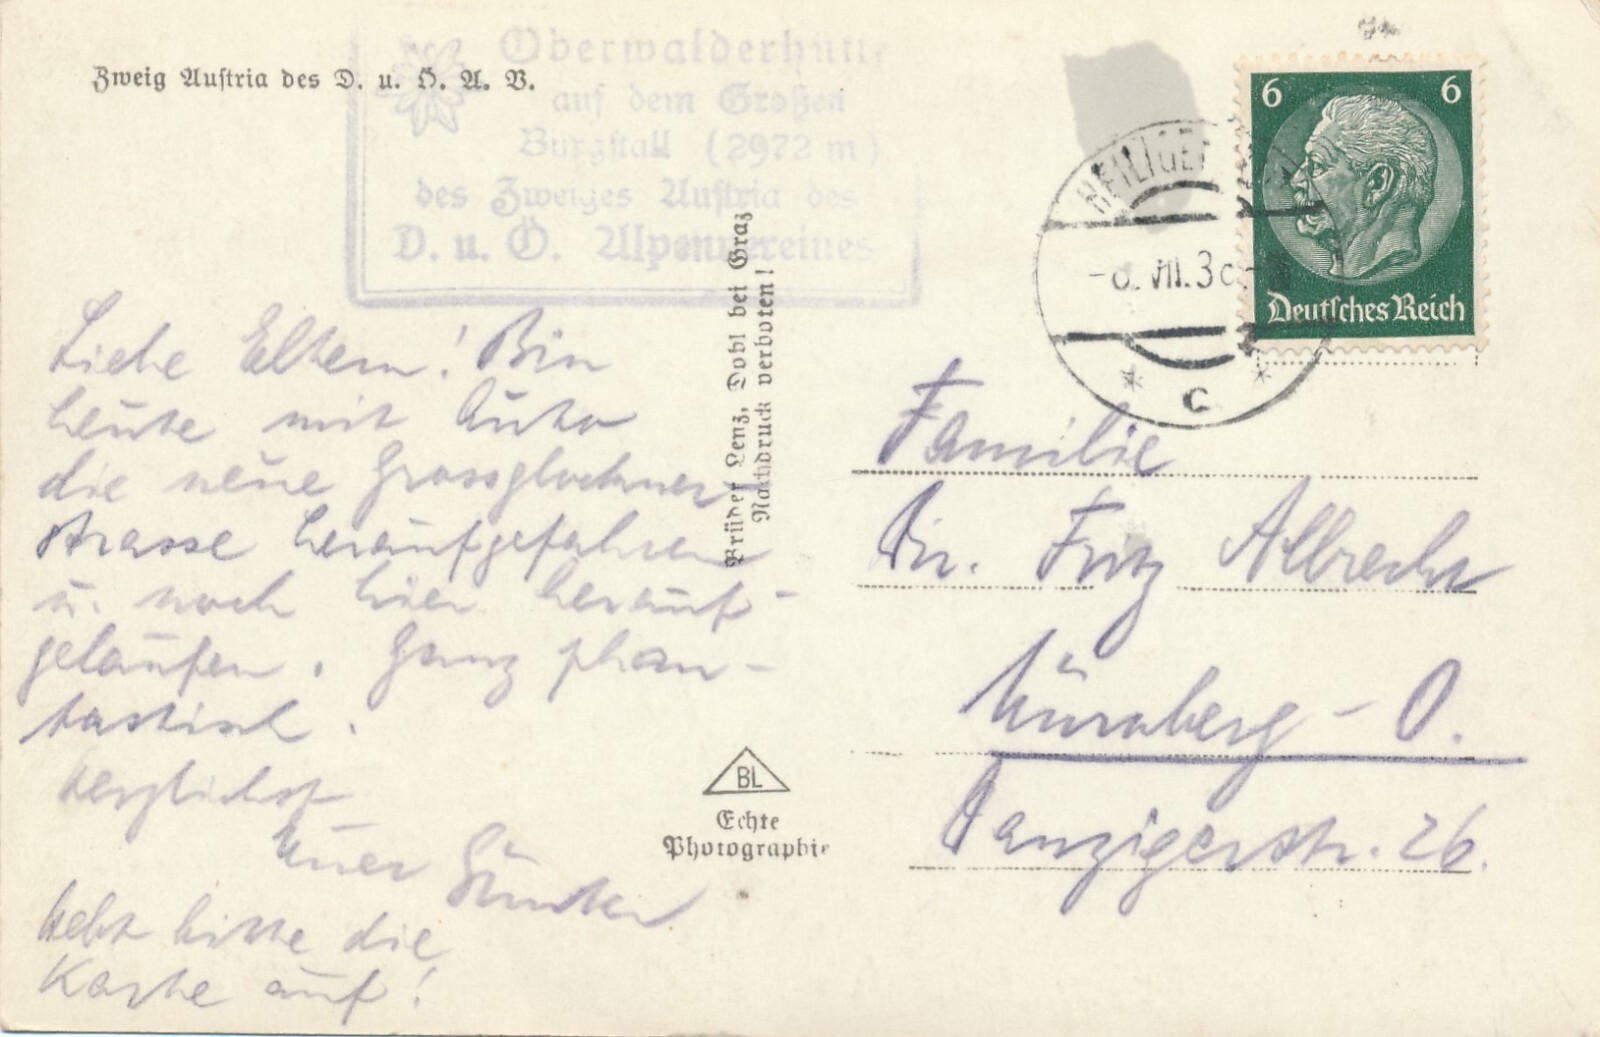 Zweig Austria des D. u. Ö. A. V.
Oberwalderhütte
auf dem Großen
Burgstall (2972 m)
des Zweiges Austria des
D. u. Ö. Alpenvereines
Liebe Eltern! Bin
heute mit Auto
die neue Grossglockner-
strasse heraufgefahren
u. noch hier herauf-
gelaufen. Ganz phan-
tastisch.
Herzlichst
Euer Günter
Hebt bitte die
Karte auf!
Brüder Lenz, Dobl bei Graz
Nachdruck verboten!
BL
Echte
Photographie
6 6
Deutsches Reich
HEILIGE
VII.3
* C *
Familie
Dir. Fritz Albrecht
Nürnberg-O.
Danzigerstr. 26.